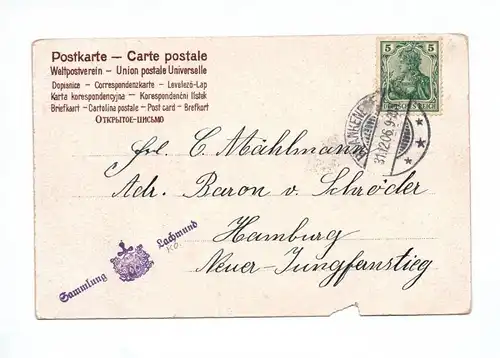 Postkarte — Carte postale
Weltpostverein — Union postale Universelle
Dopisnice — Correspondenzkarte — Levelező-Lap
Karta korespondencyjna — Korespondenční lístek
Briefkart — Cartolina postale — Post card — Brefkort
ОТКРЫТОЕ-ПИСЬМО
5 5
31.12.06.9
Frl. C. Mählmann
Adr. Baron v. Schröder
Hamburg
Neuer-Jungfanstieg
Sammlung Lachmund